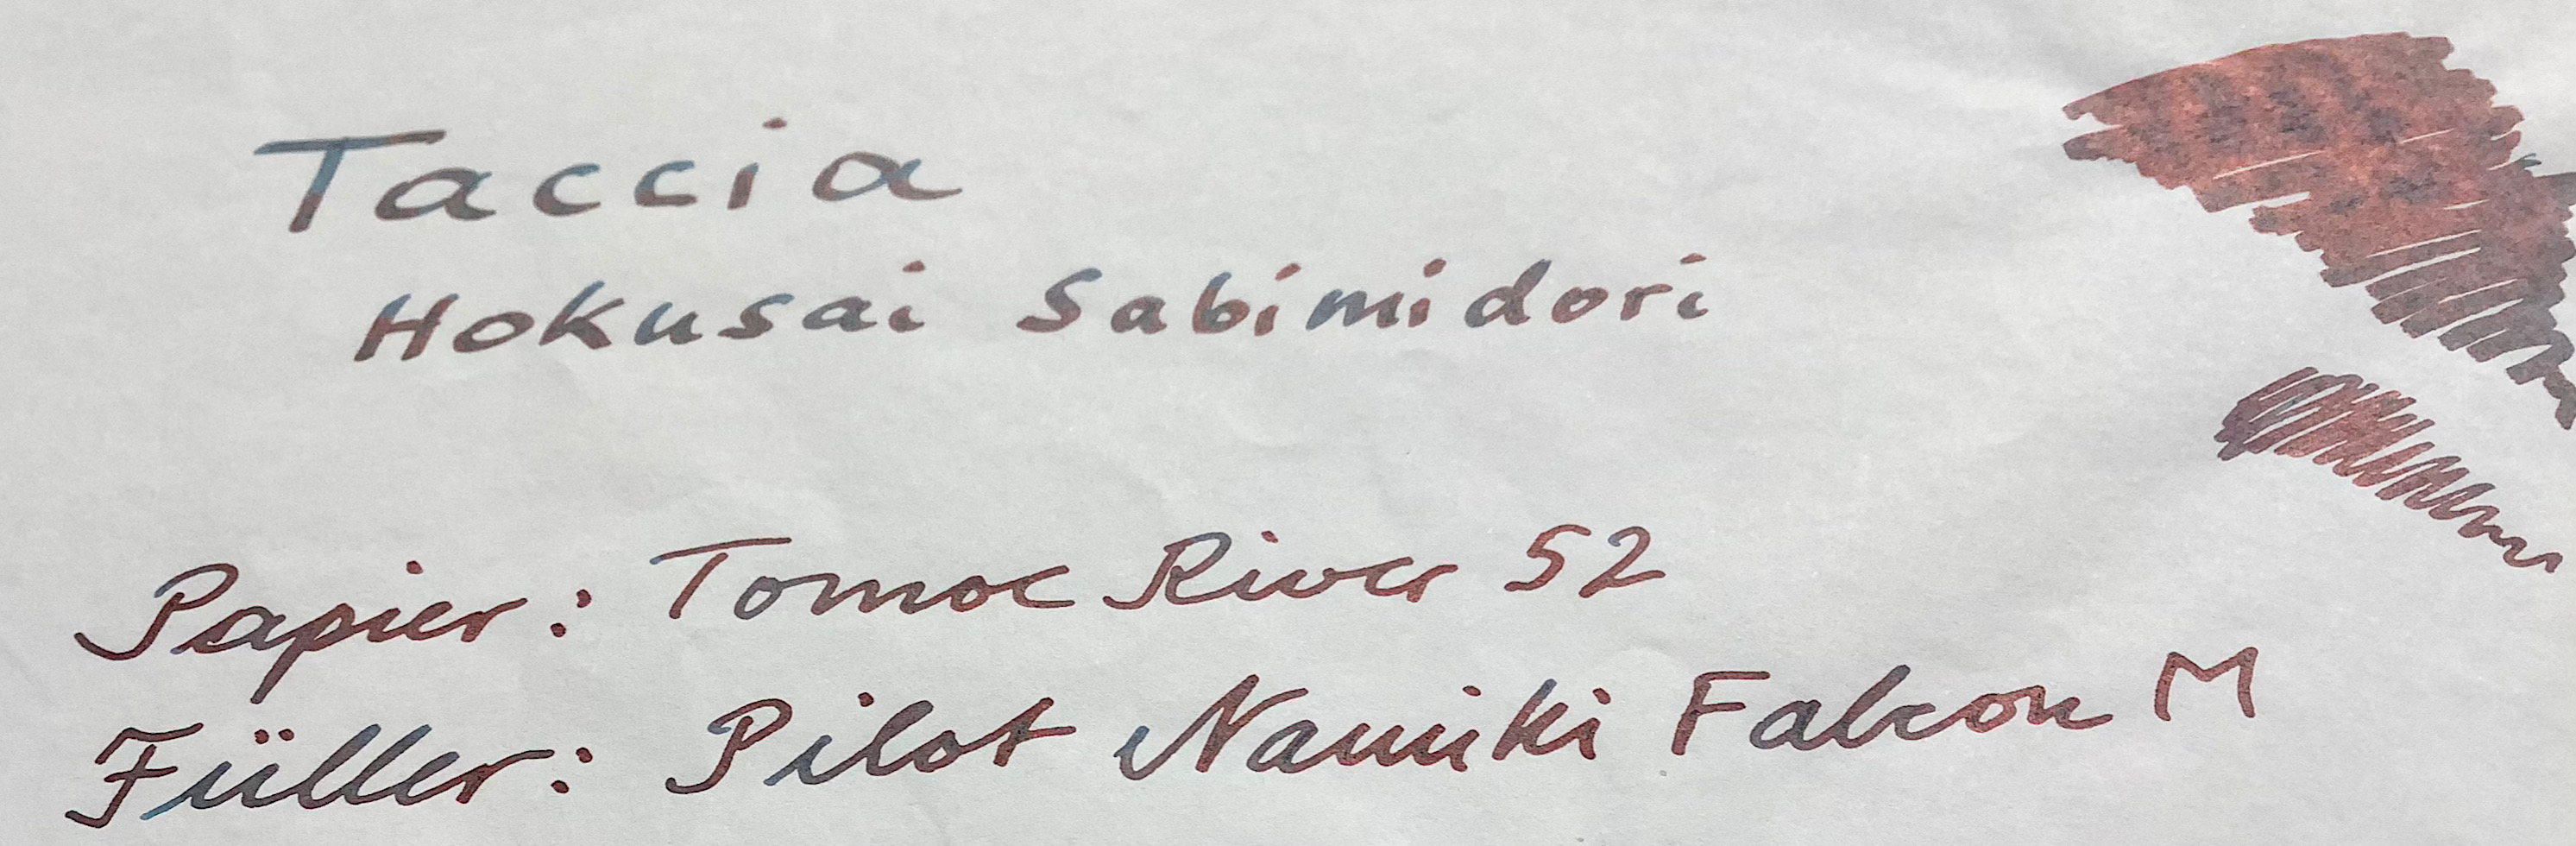 Taccia
Hokusai Sabimidori
Papier: Tomoe River 52
Füller: Pilot Namiki Falcon M